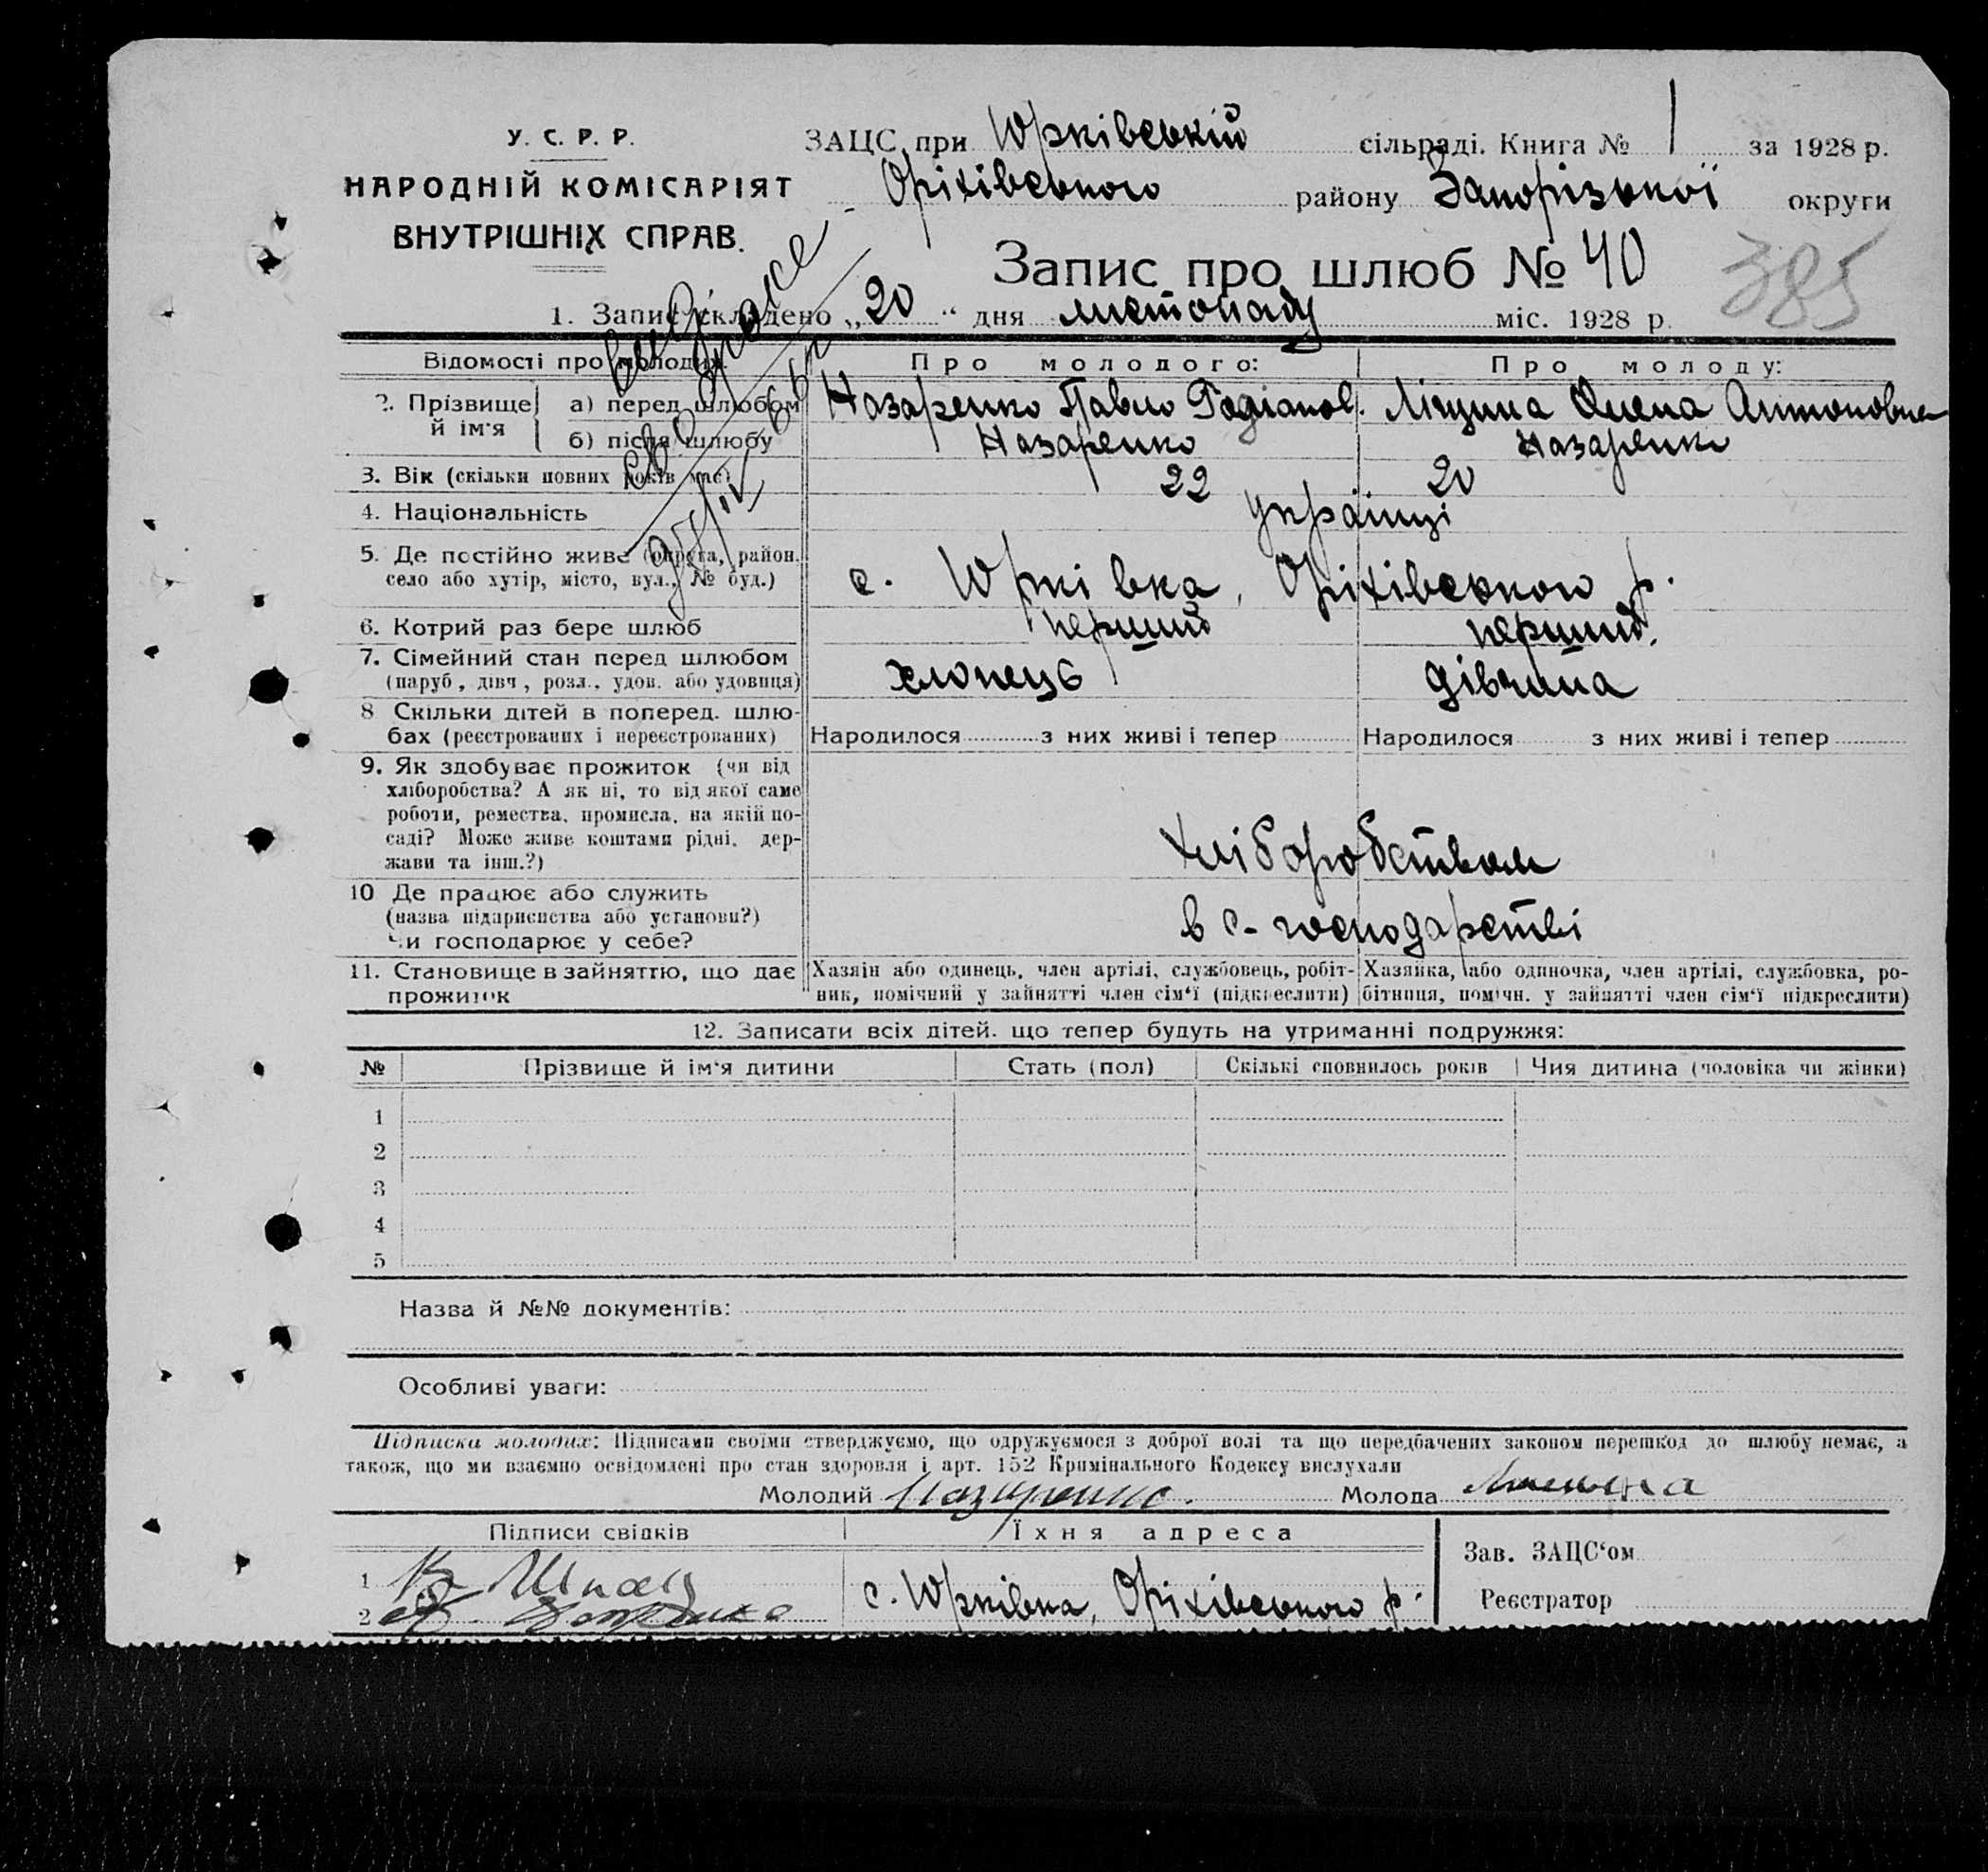 У. С. Р. Р.
НАРОДНІЙ КОМІСАРІЯТ
ВНУТРІШНІХ СПРАВ.
ЗАЦС при Юрківській сільраді. Книга № 1 за 1928 р.
Оріхівського району Запорізької округи
Запис про шлюб № 40
385
1. Запис складено „20“ дня листопаду міс. 1928 р.
Відомості про молодих. Про молодого: Про молоду:
2. Прізвище й ім'я а) перед шлюбом Назаренко Павло Родіанов. Олена Антоновна
б) після шлюбу Назаренко Назаренко
3. Вік (скільки повних років має) 22 20
4. Національність українці
5. Де постійно живе (округа, район. село або хутір, місто, вул., № буд.) с. Юрківка, Оріхівського р.
6. Котрий раз бере шлюб перший перший.
7. Сімейний стан перед шлюбом (паруб., дівч., розл., удов. або удовиця) хлопець дівчина
8 Скільки дітей в поперед. шлюбах (реєстрованих і нереєстрованих) Народилося з них живі і тепер Народилося з них живі і тепер
9. Як здобуває прожиток (чи від
хліборобства? А як ні, то від якої саме
роботи, ремества, промисла, на якій по-
саді? Може живе коштами рідні, дер-
жави та інш.?) хліборобством
10 Де працює або служить
(назва підприємства або установи?)
Чи господарює у себе? в с-господарстві
11. Становище в зайняттю, що дає прожиток
Хазяін або одинець, член артілі, службовець, робіт-
ник, помічний у зайнятті член сім'ї (підкреслити)
Хазяйка, або одиночка, член артілі, службовка, ро-
бітниця, помічн. у зайнятті член сім'ї підкреслити)
12. Записати всіх дітей. що тепер будуть на утриманні подружжя:
№ Прізвище й ім'я дитини Стать (пол) Скількі сповнилось років Чия дитина (чоловіка чи жінки)
1
2
3
4
5
Назва й №№ документів:
Особливі уваги:
Підписка молодих: Підписами своїми стверджуємо, що одружуємося з доброї волі та що передбачених законом перешкод до шлюбу немає, а
також, що ми взаємно освідомлені про стан здоровля і арт. 152 Кримінального Кодексу вислухали
Молодий Назаренко. Молода
Підписи свідків Їхня адреса
Зав. ЗАЦС'ом
1 с. Юрківка, Оріхівського р.
Реєстратор
2